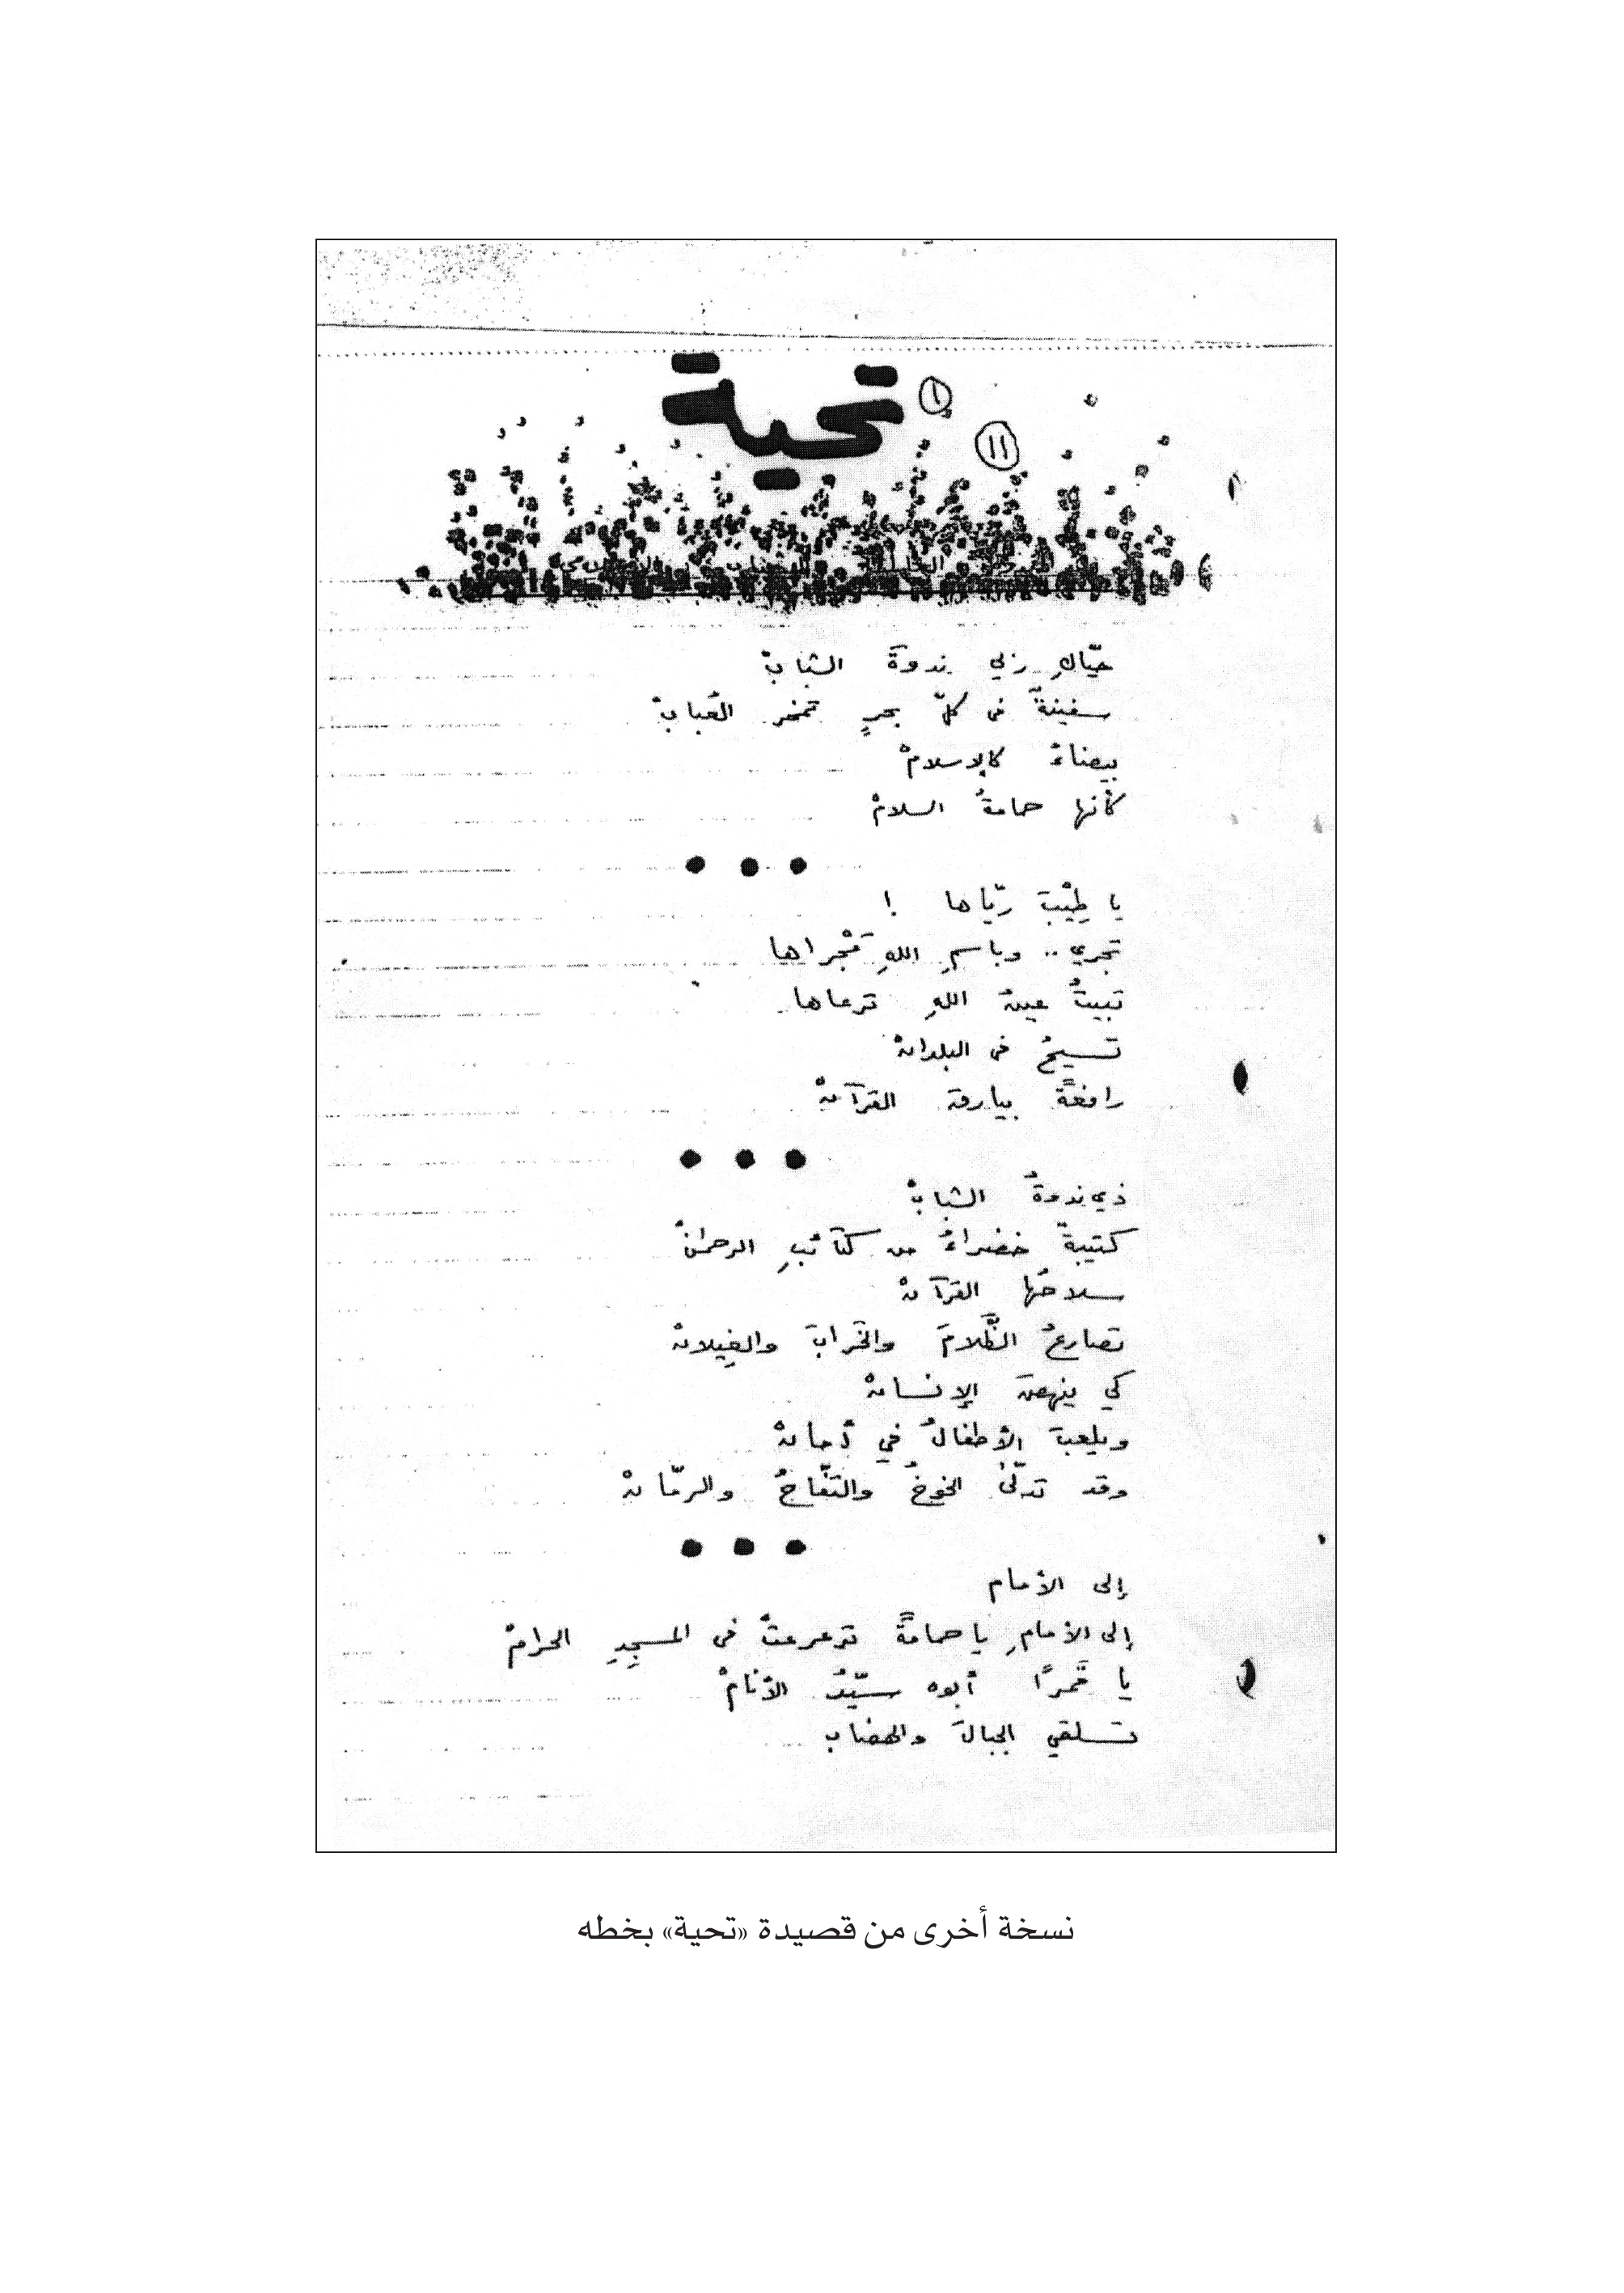 تحية
١
١١
حيّاكِ ربي ندوةَ الشبابْ
سفينةً في كلّ بحرٍ تمخر العُبابْ
بيضاءُ كالإسلامْ
كأنها حمامةُ السلامْ
يا طِيْبَ ريّاها !
تجري .. وباسمِ اللهِ مَجْراها
تبيتُ عينُ اللهِ ترعاها
تسيحُ في البلدانْ
رافعةً بيارقَ القرآنْ
ذي ندوةُ الشبابْ
كتيبةٌ خضراءُ من كتائبِ الرحمنْ
سلاحُها القرآنْ
تصارعُ الظَّلامَ والخَرابَ والغِيلانْ
كي ينهضَ الإنسانْ
ويلعبَ الأطفالُ في أمانْ
وقد تدلّى الخوخُ والتفّاحُ والرمّانْ
إلى الأمام
إلى الأمامِ يا حمامةً ترعرعتْ في المسجِدِ الحرامْ
يا قَمرًا أبوه سيّدُ الأنامْ
تسلقي الجبالَ والهضاب
نسخة أخرى من قصيدة «تحية» بخطه